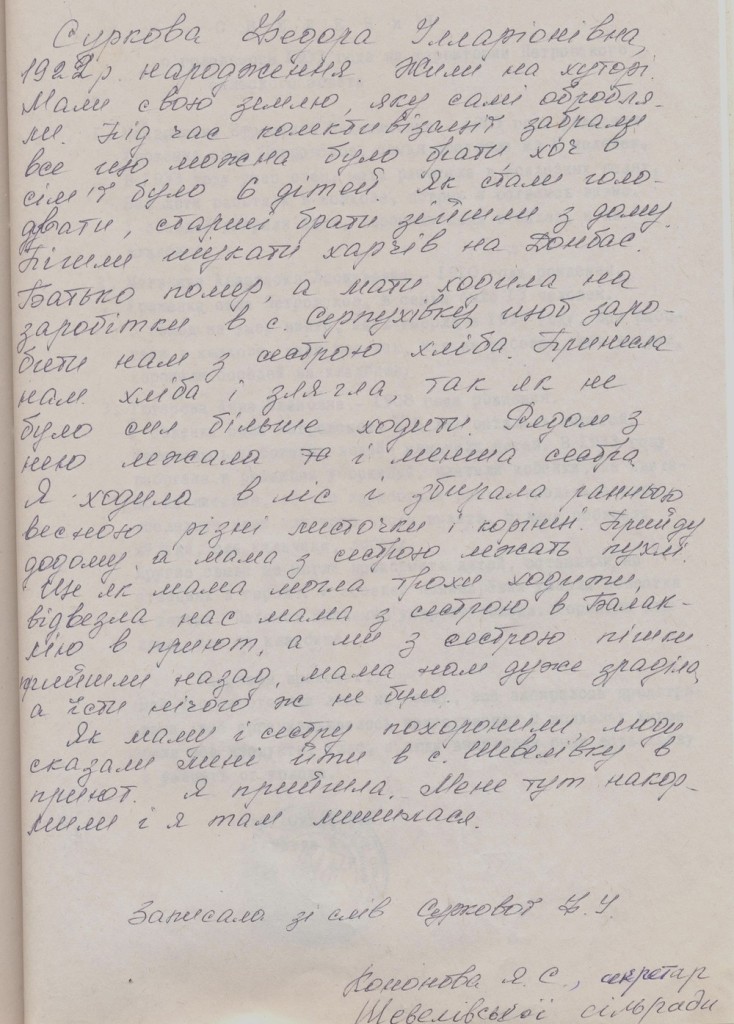 Суркова Федора Ілларіонівна,
1922 р. народження. Жили на хуторі.
Мали свою землю, яку самі обробля-
ли. Під час колективізації забрали
все що можна було брати, хоч в
сім'ї було 6 дітей. Як стали голо-
двати, старші брати зійшли з дому.
Пішли шукати харчів на Донбас.
Батько помер, а мати ходила на
заробітки в с. Серпухівку, щоб заро-
бити нам з сестрою хліба. Принесла
нам хліба і злягла, так як не
було сил більше ходити. Рядом з
нею лежала і менша сестра
Я ходила в ліс і збирала ранньою
весною різні листочки і корінні. Прийду
додому, а мама з сестрою лежать пухлі.
Ще як мама могла трохи ходити,
відвезла нас мама з сестрою в Балак-
лію в приют, а ми з сестрою пішки
прийшли назад, мама нам дуже зраділа,
а їсти нічого ж не було.
Як маму і сестру похоронили, люди
сказали мені йти в с. Шевелівку в
приют. Я прийшла. Мене тут накор-
мили і я там лишилася.
Записала зі слів Суркової Ф. І.
Кононова Я. С., секретар
Шевелівської сільради